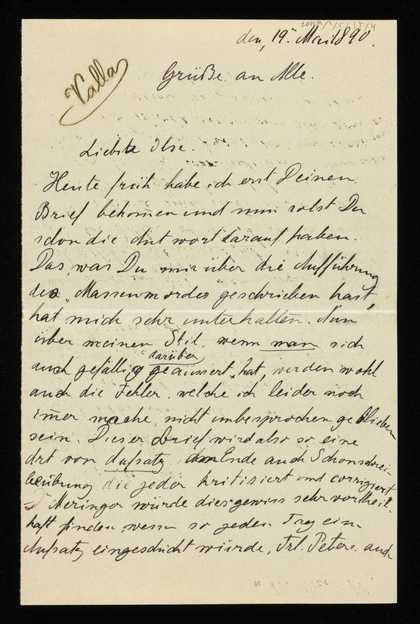 den, 19. Mai 1890.
Valla
Grüße an Alle.
Liebste Ilse.
Heute früh habe ich erst Deinen
Brief bekommen und nun solst Du
schon die Antwort darauf haben.
Das was Du mir über die Aufführung
des Massenmordes geschrieben hast,
hat mich sehr unterhalten. Nun
über meinen Stil, wenn man sich
auch gefällig darüber geäussert hat, werden wohl
auch die Fehler, welche ich leider noch
imer mache, nicht unbesprochen geblieben
sein. Dieser Brief wird also so eine
Art von Aufsatz am Ende auch Schönschrei-
beübung die jeder kritisiert und corrigiert
Meringer würde dies gewiss sehr vortheil-
haft finden wenn so jeden Tag ein
Aufsatz eingeschickt würde, Frl. Peters auch